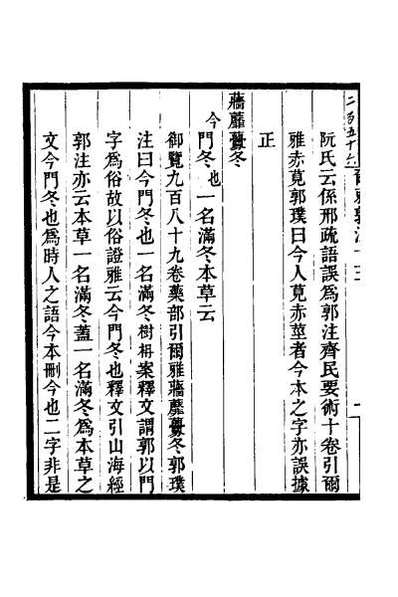 阮氏云係邢疏語誤爲郭注齊民要術十卷引爾
雅赤莧郭璞曰今人莧赤莖者今本之字亦誤據
正
蘠蘼虋冬
今門冬也一名滿冬本草云
御覽九百八十九卷藥部引爾雅蘠蘼虋冬郭璞
注曰今門冬也一名滿冬樹枏案釋文謂郭以門
字爲俗故以俗證雅云今門冬也釋文引山海經
郭注亦云本草一名滿冬蓋一名滿冬爲本草之
文今門冬也爲時人之語今本刪今也二字非是